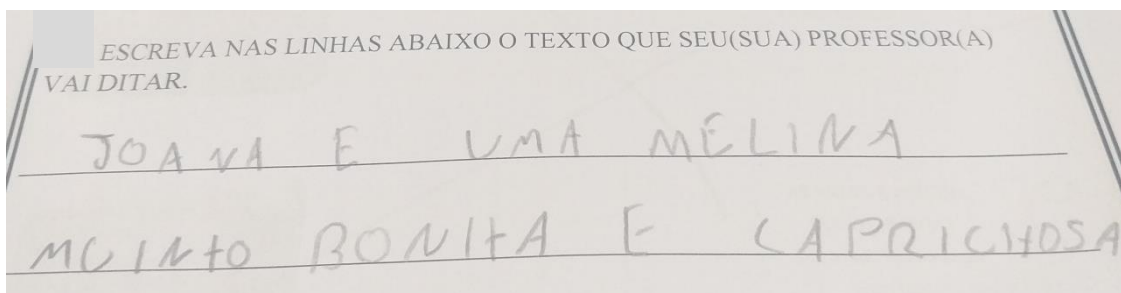 ESCREVA NAS LINHAS ABAIXO O TEXTO QUE SEU(SUA) PROFESSOR(A)
VAI DITAR.
JOANA E UMA MELINA
MUINTO BONITA E CAPRICHOSA